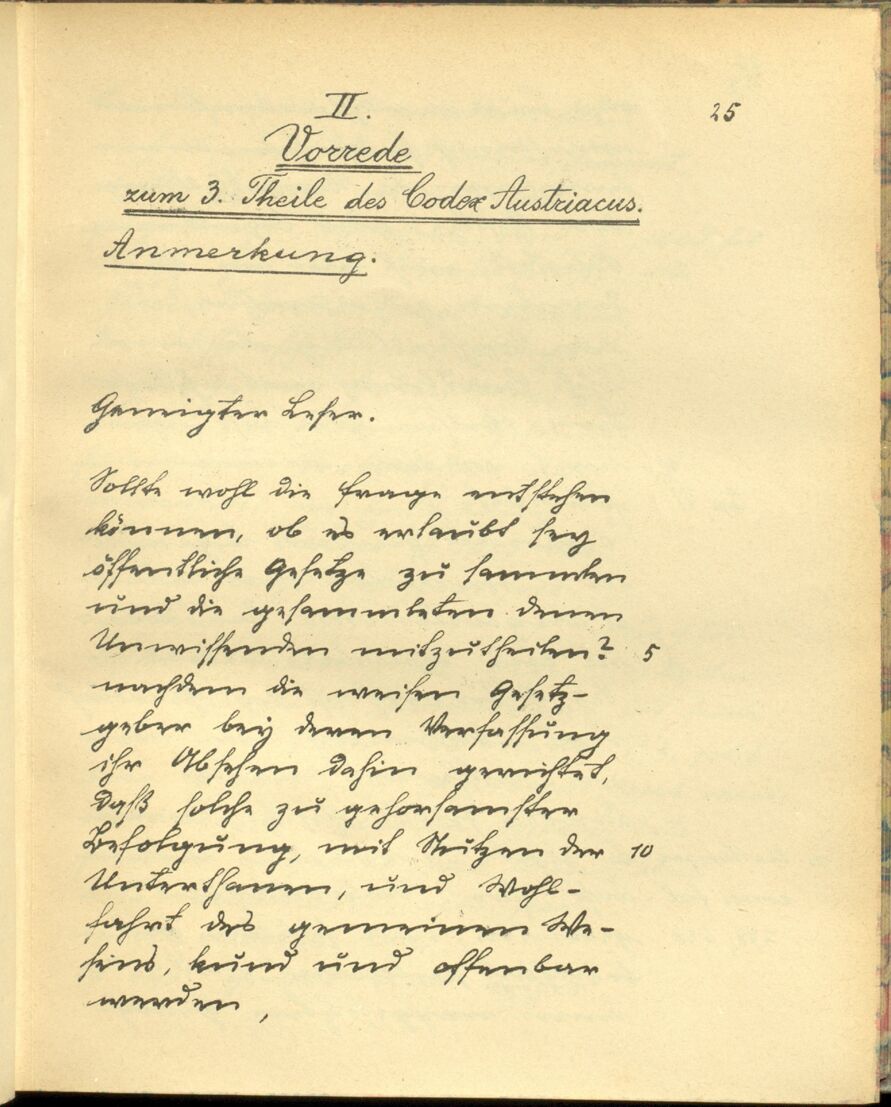 II.
25
Vorrede
zum 3. Theile des Codex Austriacus.
Anmerkung.
Geneigter Leser.
Sollte wohl die Frage entstehen
können, ob es erlaubt sey
öffentliche Gesetze zu sammlen
und die gesammleten denen
Unwissenden mitzutheilen? 5
nachdem die weisen Gesetz-
geber bey deren Verfassung
ihr Absehen dahin gerichtet,
daß solche zu gehorsamster
Befolgung, mit Nutzen der 10
Unterthanen, und Wohl-
fahrt des gemeinen We-
sens, kund und offenbar
werden,